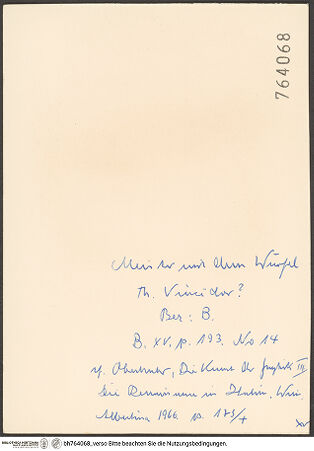 764068
Meister mit dem Würfel
Th. Vincidor?
Bez: B.
B. XV, p. 193, No 14
cf. Oberhuber, Die Kunst der Graphik III,
Die Renaissance in Italien, Wien,
Albertina 1966 p. 173/7
bh764068_verso Bitte beachten Sie die Nutzungsbedingungen.